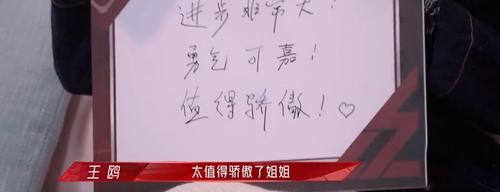 进步非常大!
勇气可嘉!
值得骄傲!♡
王鸥 太值得骄傲了姐姐